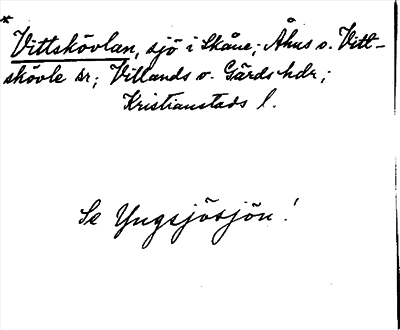 *
Vittskövlan, sjö i Skåne; Åhus o. Vitt-
skövle sr; Villands o. Gärds hdr;
Kristianstads l.
Se Yngsjösjön!